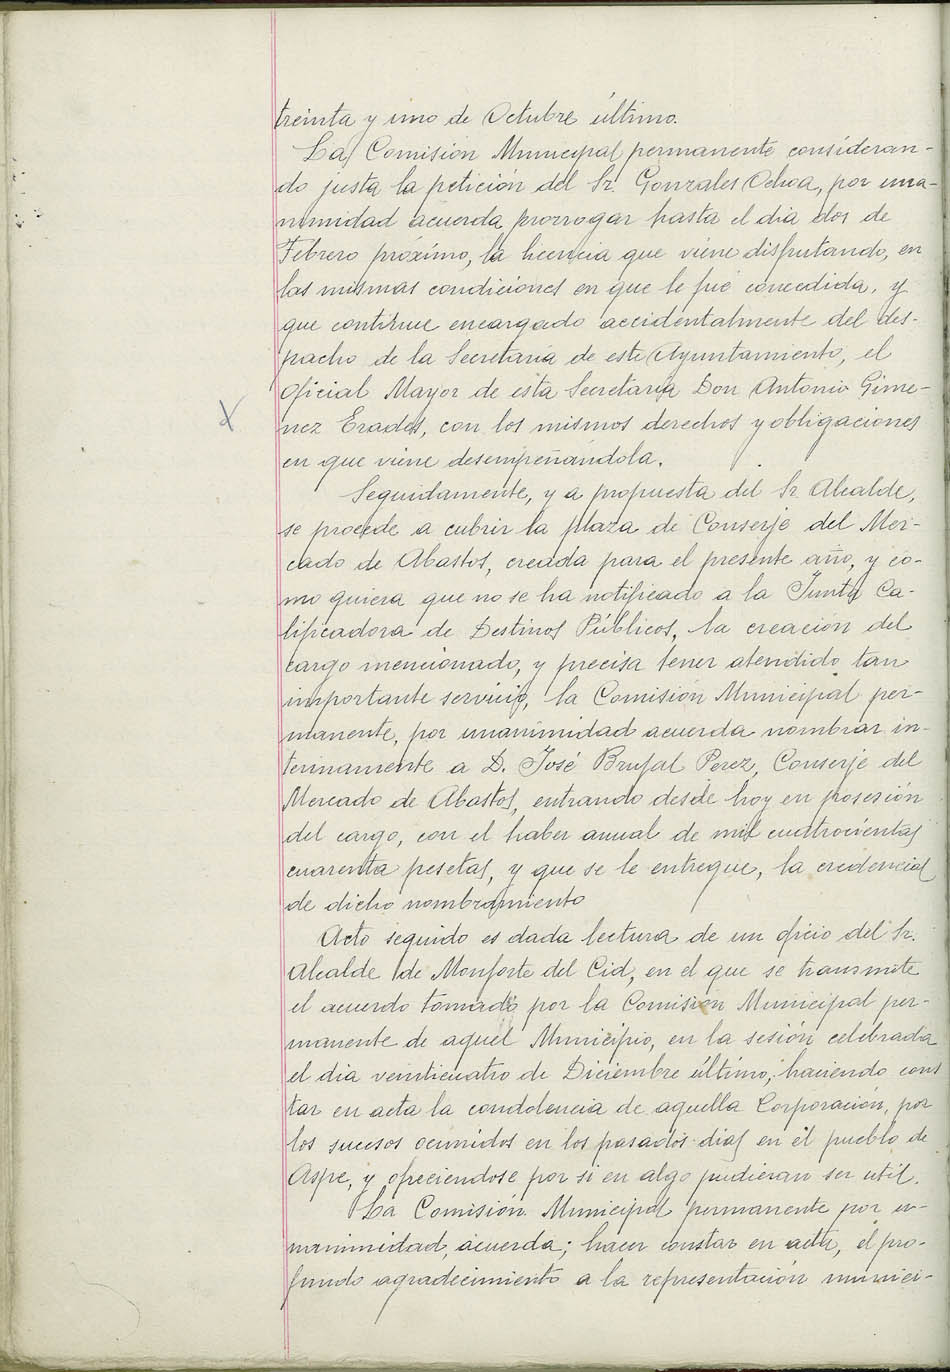 treinta y uno de Octubre último.
La Comisión Municipal permanente consideran-
do justa la petición del Sr. Gonzales Ochoa, por una-
nimidad acuerda prorrogar hasta el dia dos de
Febrero próximo, la licencia que viene disfrutando, en
las mismas condiciones en que le fué concedida, y
que continue encargado accidentalmente del des-
pacho de la Secretaria de este Ayuntamiento, el
Oficial Mayor de esta Secretaria Don Antonio Gime-
nez Erades, con los mismos derechos y obligaciones
en que viene desempeñándola.
Seguidamente, y a propuesta del Sr. Alcalde,
se procede a cubrir la plaza de Conserje del Mer-
cado de Abastos, creada para el presente año, y co-
mo quiera que no se ha notificado a la Junta Ca-
lificadora de Destinos Públicos, la creación del
cargo mencionado, y precisa tener atendido tan
importante servicio, la Comisión Municipal per-
manente, por unanimidad acuerda nombrar in-
terinamente a D. José Brufal Perez, Conserje del
Mercado de Abastos, entrando desde hoy en posesión
del cargo, con el haber anual de mil cuatrocientas
cuarenta pesetas, y que se le entregue, la credencial
de dicho nombramiento
Acto seguido es dada lectura de un oficio del Sr.
Alcalde de Monforte del Cid, en el que se transmite
el acuerdo tomado por la Comisión Municipal per-
manente de aquel Municipio, en la sesión celebrada
el dia veinticuatro de Diciembre último, haciendo cons
tar en acta la condolencia de aquella Corporación, por
los sucesos ocurridos en los pasados dias en el pueblo de
Aspe, y ofreciendose por si en algo pudieran ser util.
La Comisión Municipal permanente por u-
nanimidad, acuerda; hacer constar en acta, el pro-
fundo agradecimiento a la representación munici-